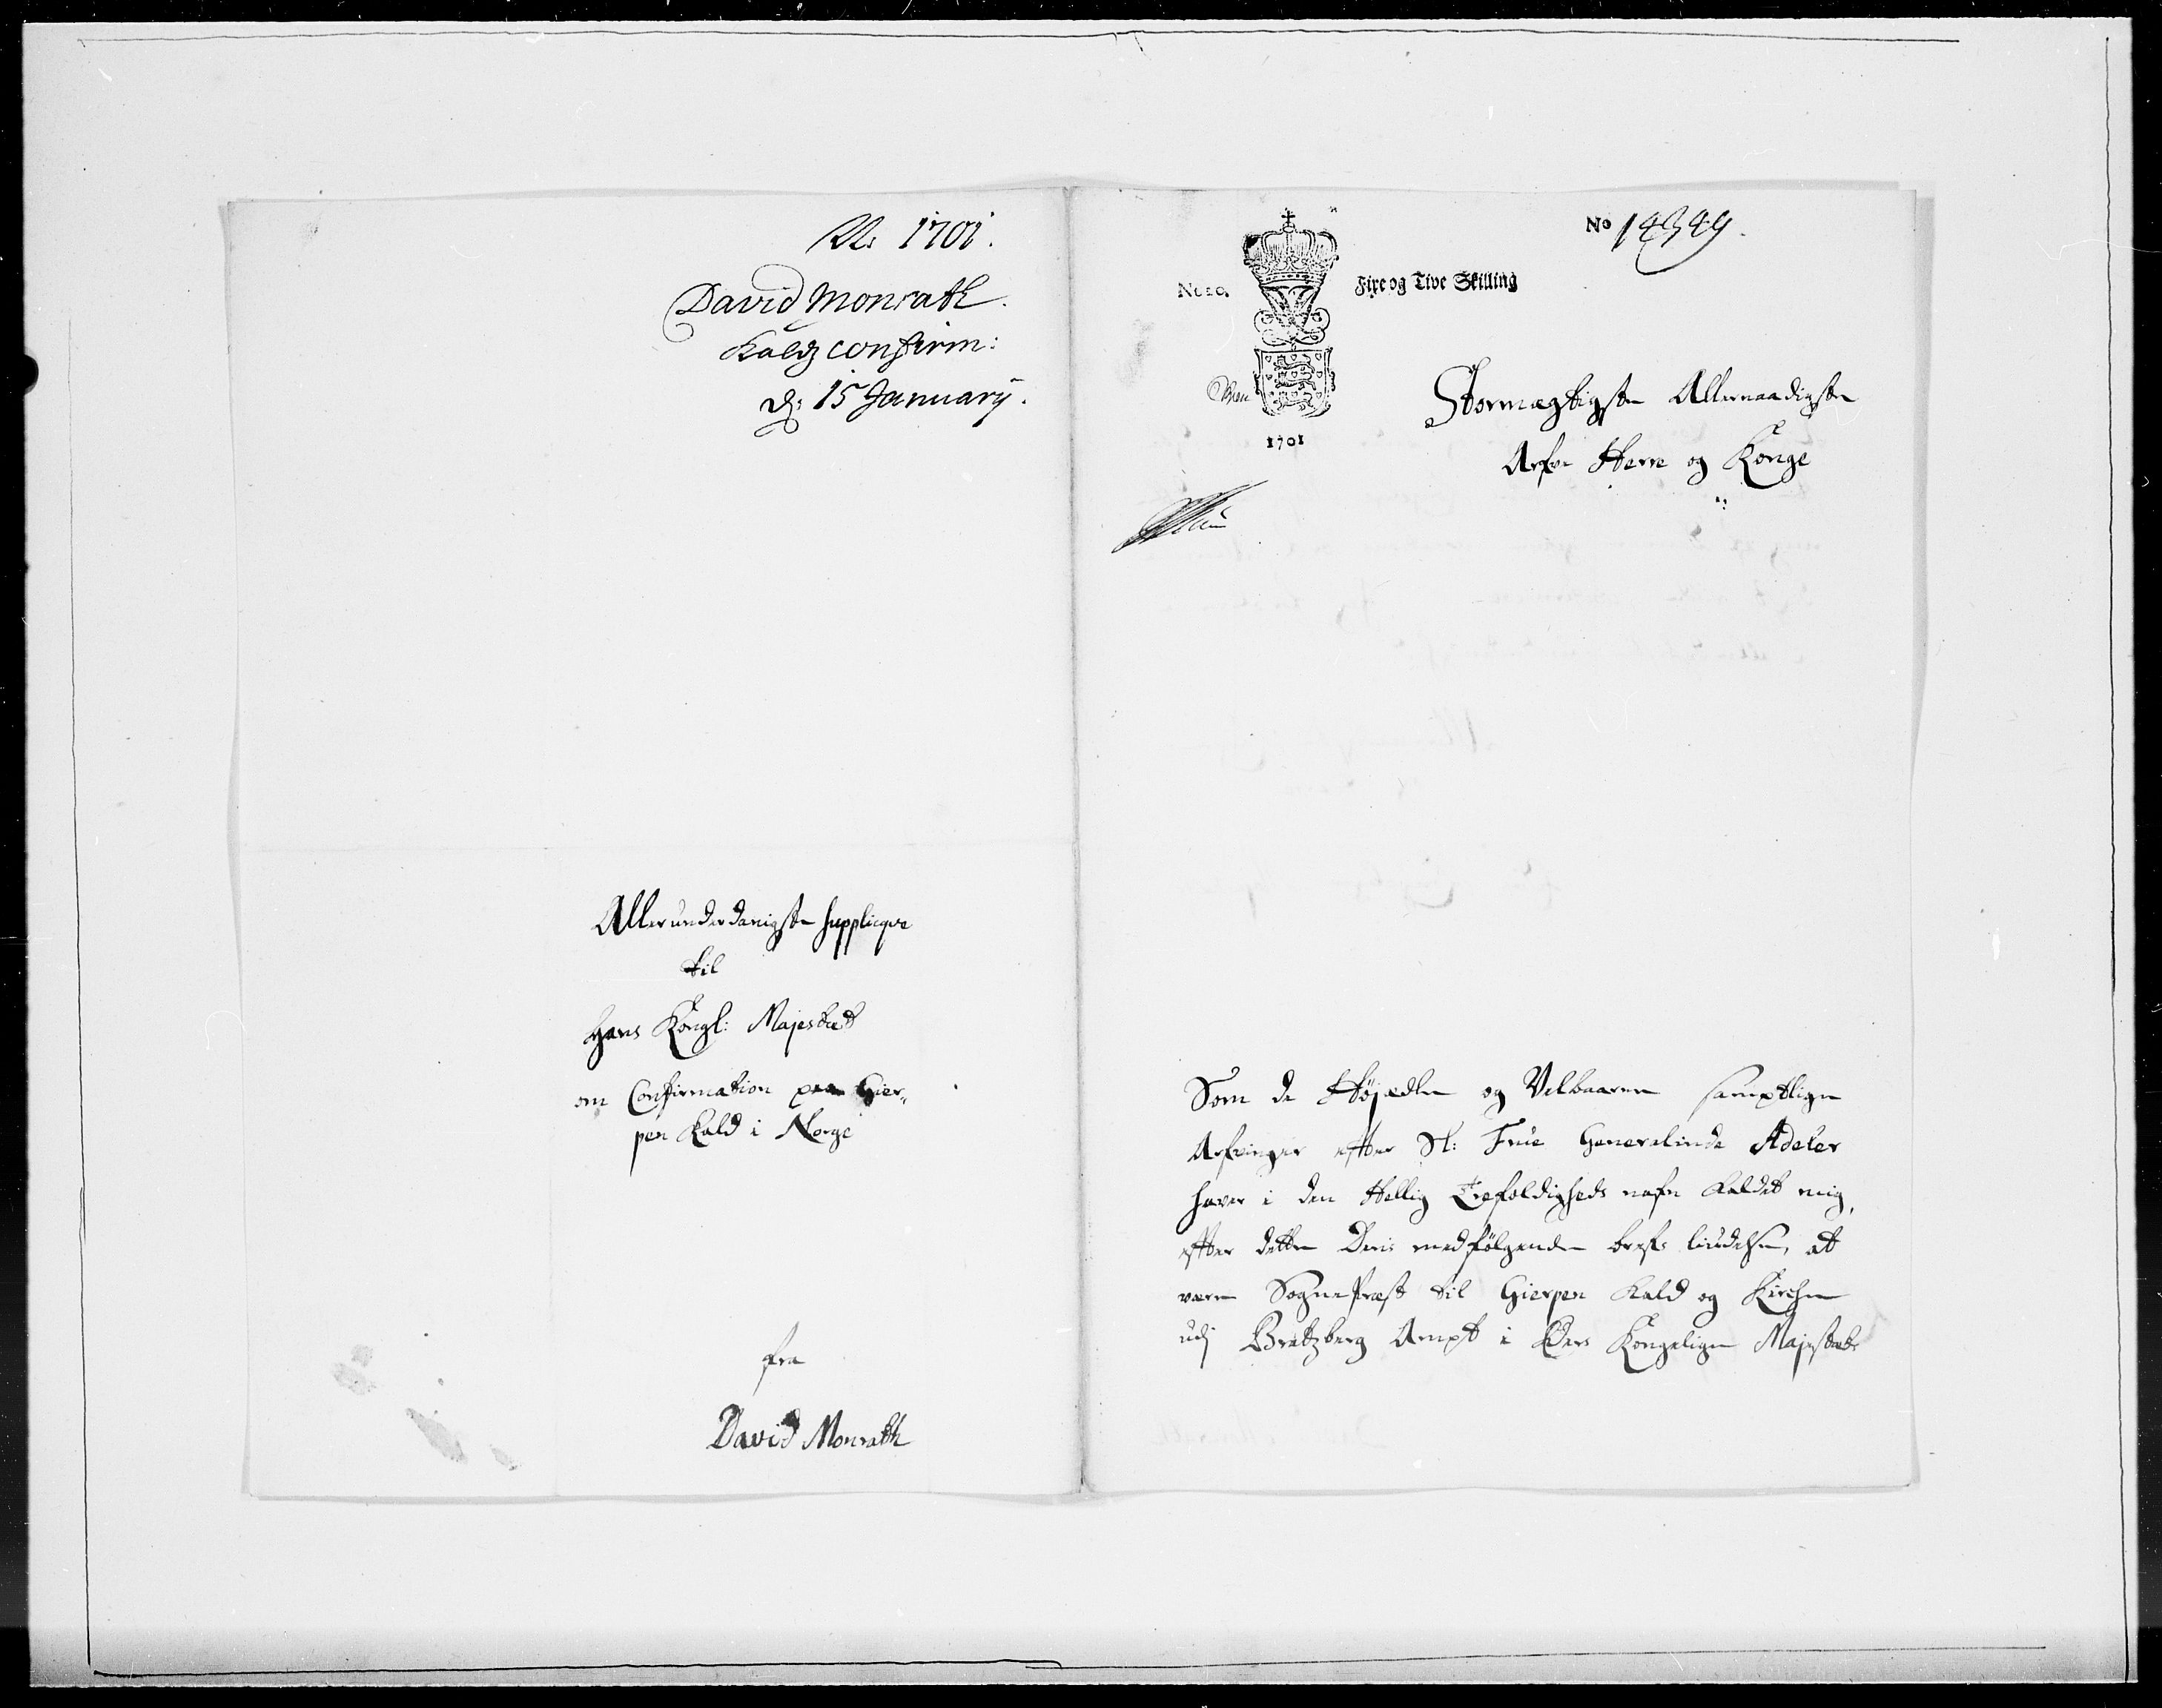 Ao 1701.
David Monrath.
Kaldz confirm:
d: 15 January.
Allerunderdanigste supplicqve
til
Hans Kongl: Majestæt
om Confirmation paa Gier„
pen Kald i Norge
fra
David Monrath
No 14349.
No 20. Fire og Tive Skilling
1701
Stormægtigste Allernaadigste
Arfve Herre og Konge
Som de Højædle og Velbaarne samptlige
Arfvinger efter Sl: Frue Generalinde Adeler
haver i den Hellig Trefoldigheds nafn kaldet mig,
efter dette Deris medfølgende brefs liudelse, at
være Sognepræst til Gierpen Kald og Kirche
udj Bratzberg Ampt i Eders Kongelige Majestæts